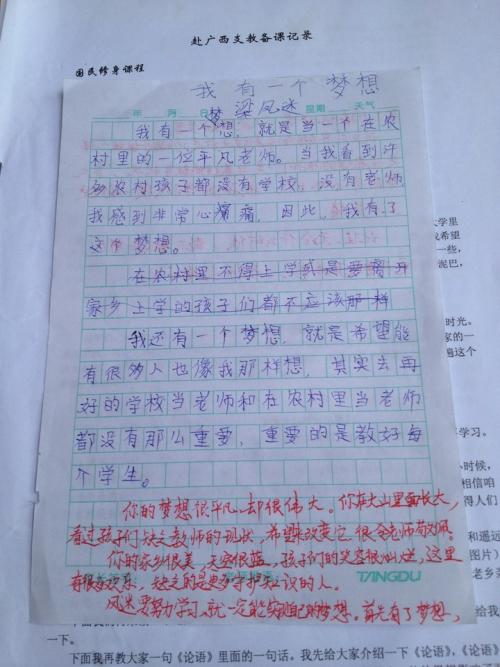 赴广西支教备课记录
国民修身课程
我有一个梦想
年 月 日 梁凤迷 星期 天气
我有一个梦想，就是当一个在农
村里的一位平凡老师。当我看到许
多农村孩子都没有学校，没有老师
我感到非常心痛，因此，我有了
这个梦想。
在农村里不得上学或是要离开
家乡上学的孩子们都不应该那样
我还有一个梦想，就是希望能
有很多人也像我那样想，其实去再
好的学校当老师和在农村里当老师
都没有那么重要，重要的是教好每
个学生。
你的梦想很平凡，却很伟大。你在大山里面长大，
看过孩子们缺乏教师的现状，希望来改变它，很令老师敬佩。
你的家乡很美，天空很蓝，孩子们的笑容很灿烂，这里
有很多欢乐，缺乏的是更多守护知识的人。
TANGDU
凤迷要努力学习，就一定能实现自己的梦想。首先有了梦想，
大学里
我希望
一些，
泥巴，
时光。
家的一
遍这个
学习。
小时候，
相信咱
得人们
和遥远
图片）
老乡
给我
一下。
下面我再教大家一句《论语》里面的一句话。我先给大家介绍一下《论语》，《论语》